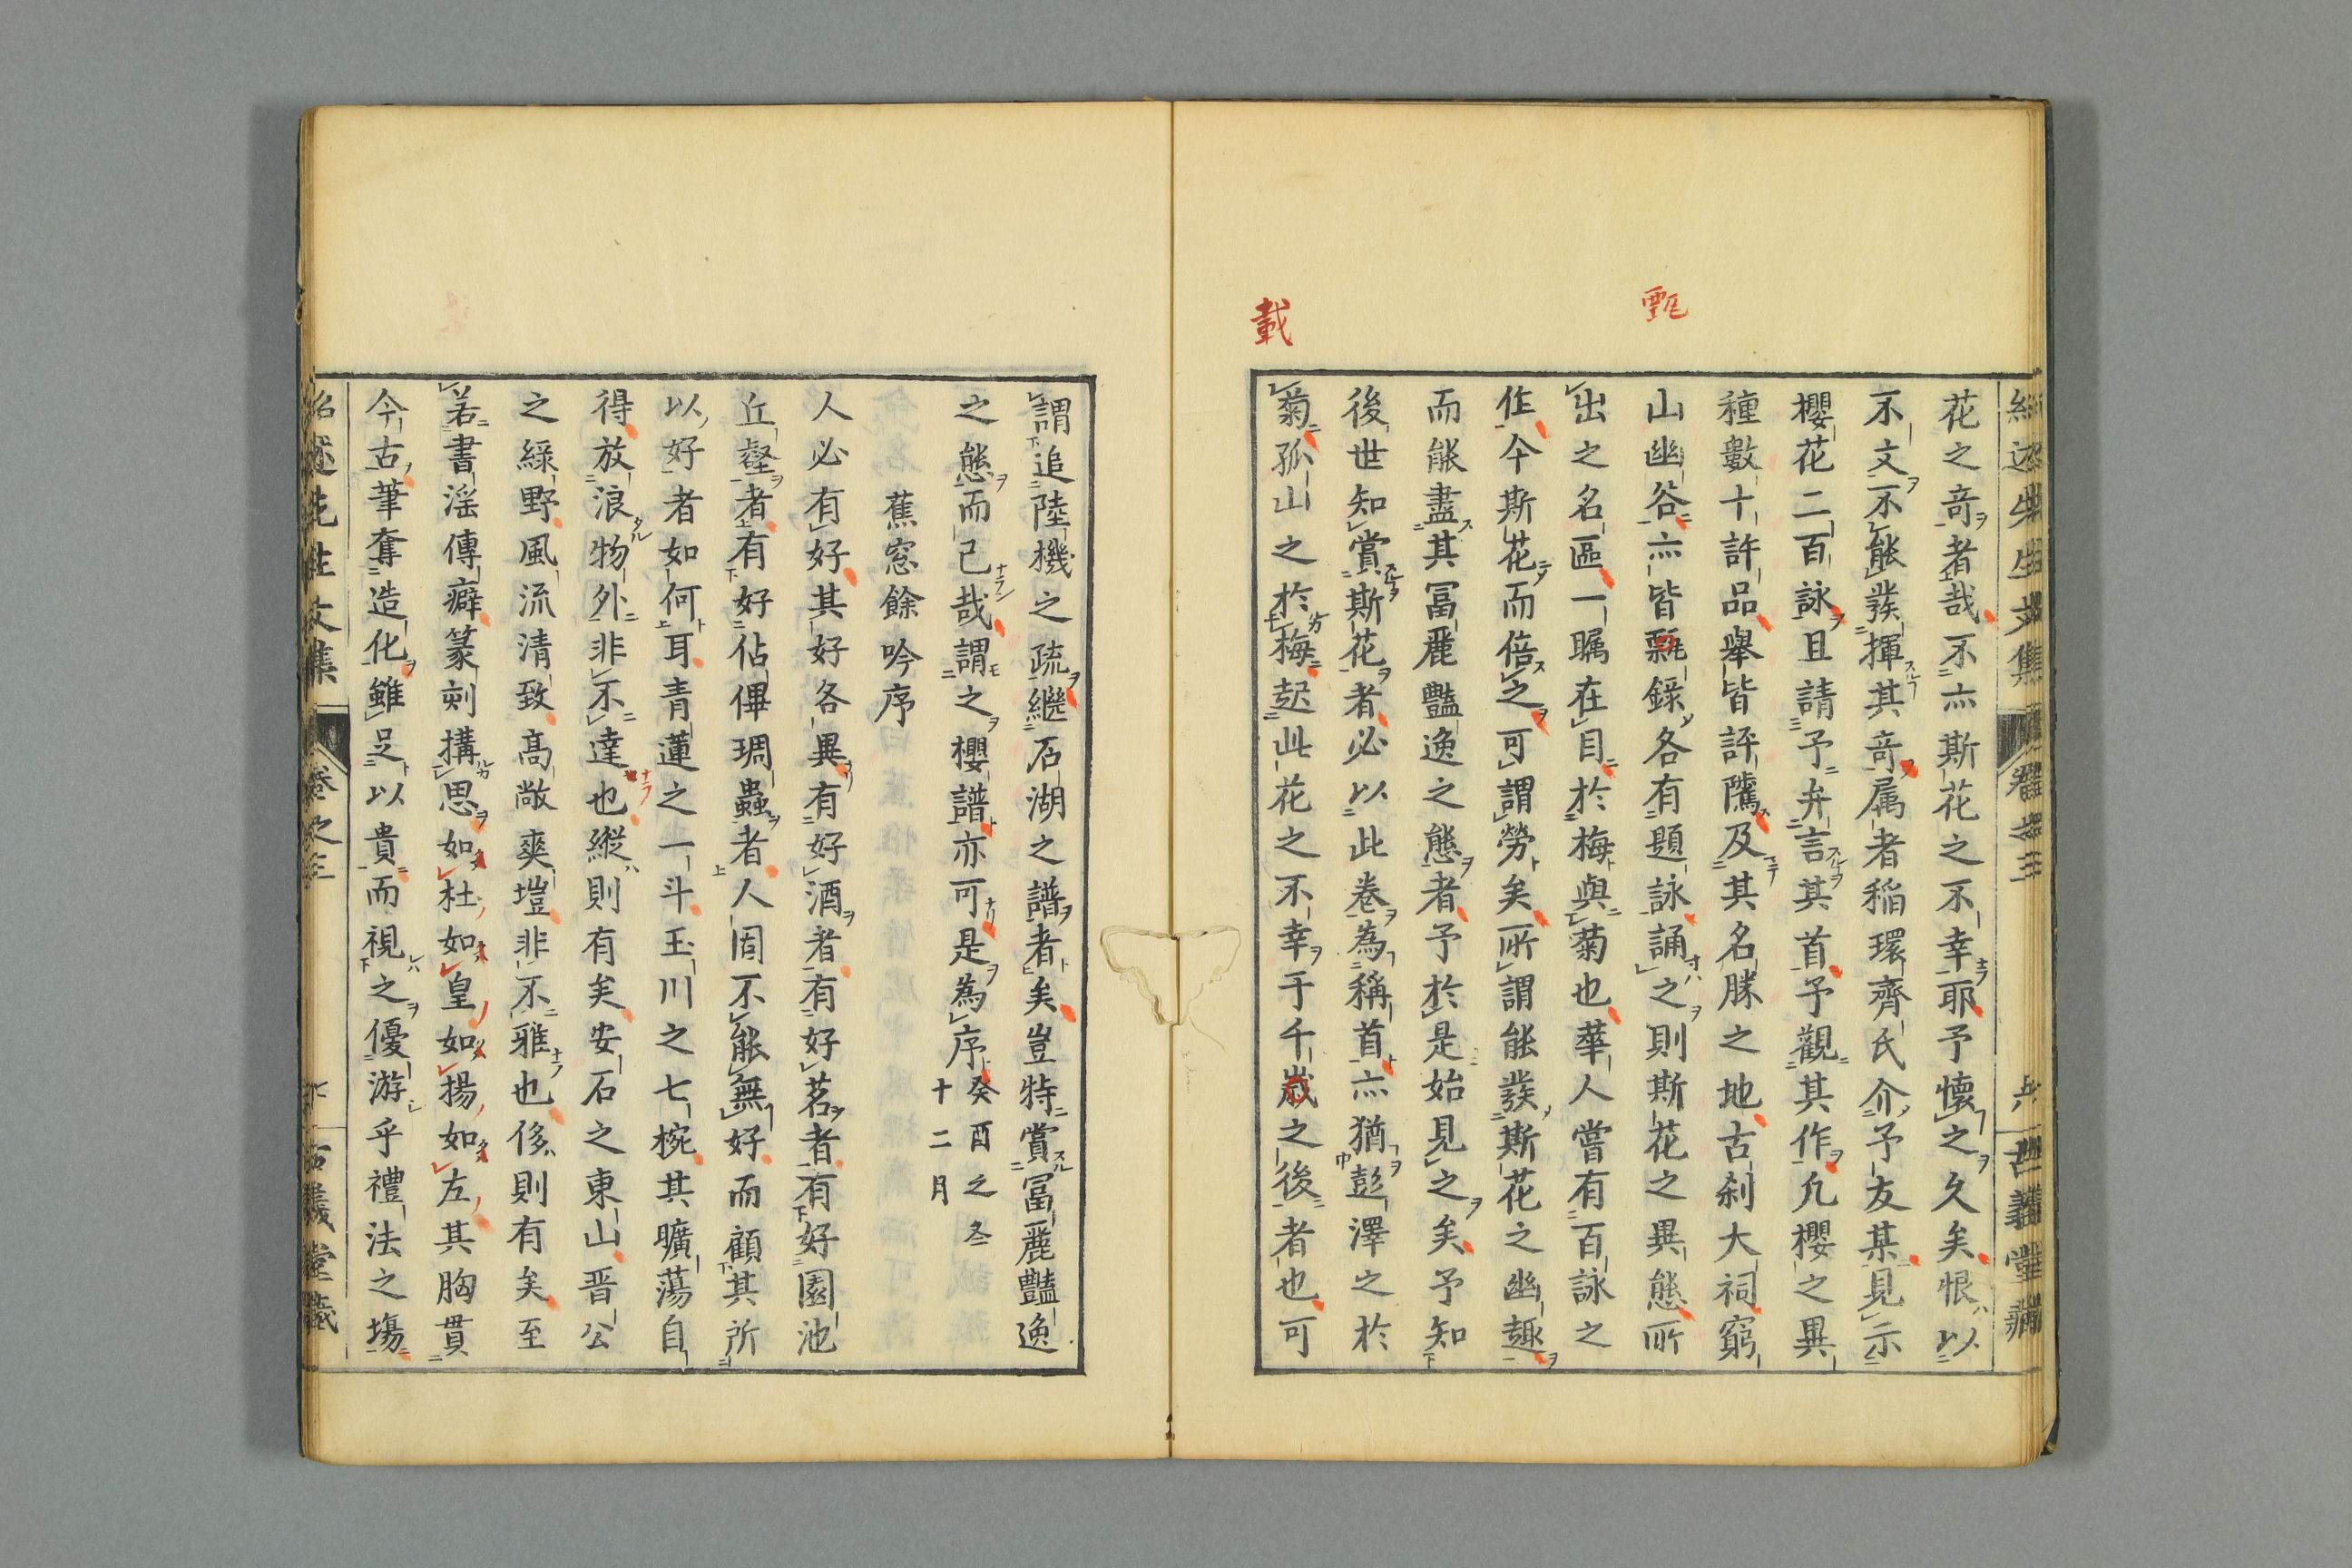 甄
載
花之竒者哉不亦斯花之不幸耶予懷之久矣恨以
不文不能發揮其竒属者稲環齊氏介予友某見示
櫻花二百詠且請予弁言其首予觀其作凢櫻之異
種數十許品舉皆評隲及其名勝之地古刹大祠窮
山幽谷亦皆甄錄各有題詠誦之則斯花之異態所
出之名區一瞩在目於梅與菊也華人嘗有百詠之
作今斯花而倍之可謂勞矣所謂能發斯花之幽趣
而能盡其冨麗豔逸之態者予於是始見之矣予知
後世知賞斯花者必以此卷為稱首亦猶彭澤之於
菊孤山之於梅起此花之不幸于千歳之後者也可
謂追陸機之疏繼石湖之譜者矣豈特賞冨麗豔逸
之態而已哉謂之櫻譜亦可是為序癸酉之冬十二月
蕉窓餘吟序
人必有好其好各異有好酒者有好茗者有好園池
丘壑者有好佔俾琱蟲者人固不能無好而顧其所
以好者如何耳青蓮之一斗玉川之七椀其曠蕩自
得放浪物外非不達也縱則有矣安石之東山晋公
之綠野風流清致高敞爽塏非不雅也侈則有矣至
若書淫傳癖篆刻構思如杜如皇如揚如左其胸貫
今古筆奪造化雖足以貴而視之優游乎禮法之塲
紹述先生文集 卷之三 古義堂藏